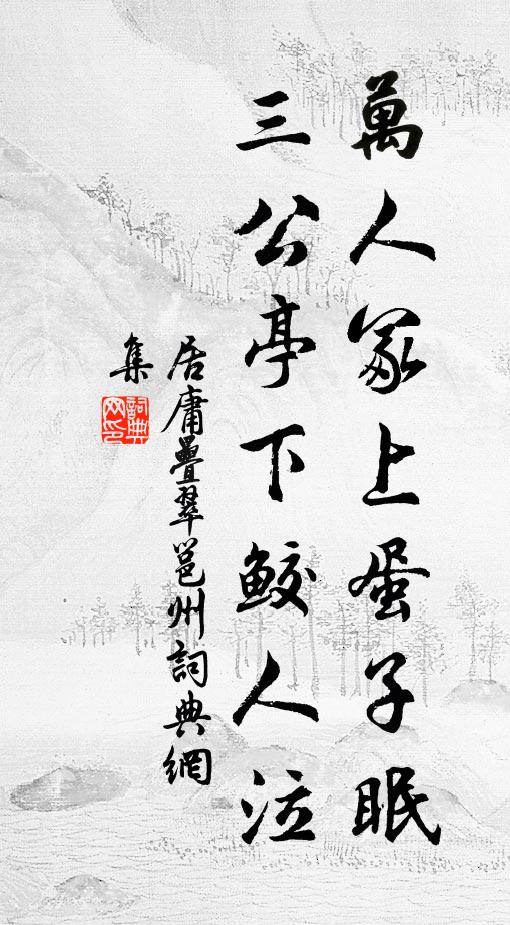 萬人冢上蛋子眠
三公亭下鮫人泣
居庸疊翠邕州詞典網
集
詞典網印